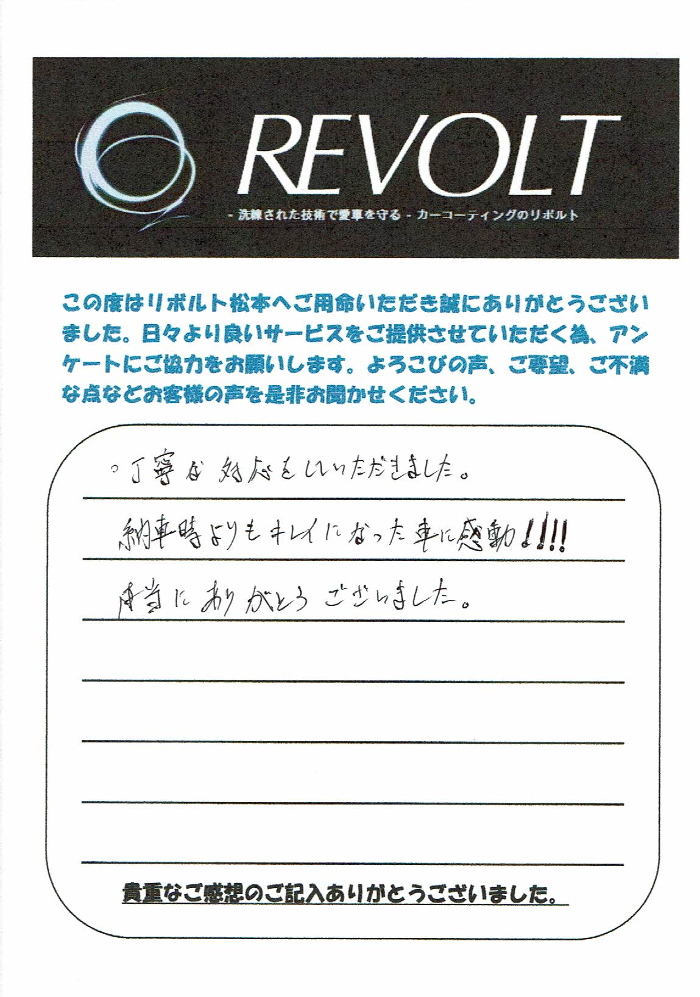 REVOLT
- 洗練された技術で愛車を守る - カーコーティングのリボルト
この度はリボルト松本へご用命いただき誠にありがとうござい
ました。日々より良いサービスをご提供させていただく為、アン
ケートにご協力をお願いします。よろこびの声、ご要望、ご不満
な点などお客様の声を是非お聞かせください。
。丁寧な対応をしていただきました。
納車時よりもキレイになった車に感動!!!!
本当にありがとうございました。
貴重なご感想のご記入ありがとうございました。